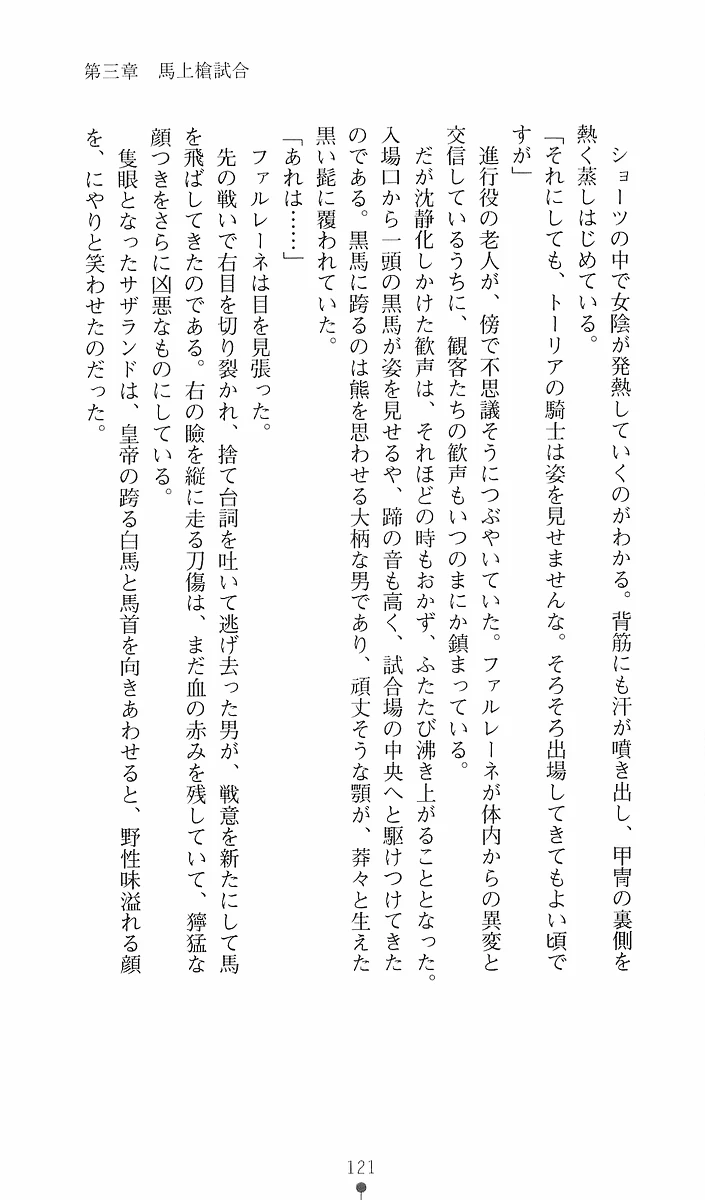 第三章　馬上槍試合
ショーツの中で女陰が発熱していくのがわかる。背筋にも汗が噴き出し、甲冑の裏側を
熱く蒸しはじめている。
「それにしても、トーリアの騎士は姿を見せませんな。そろそろ出場してきてもよい頃で
すが」
進行役の老人が、傍で不思議そうにつぶやいていた。ファルレーネが体内からの異変と
交信しているうちに、観客たちの歓声もいつのまにか鎮まっている。
だが沈静化しかけた歓声は、それほどの時もおかず、ふたたび沸き上がることとなった。
入場口から一頭の黒馬が姿を見せるや、蹄の音も高く、試合場の中央へと駆けつけてきた
のである。黒馬に跨るのは熊を思わせる大柄な男であり、頑丈そうな顎が、莽々と生えた
黒い髭に覆われていた。
「あれは……」
ファルレーネは目を見張った。
先の戦いで右目を切り裂かれ、捨て台詞を吐いて逃げ去った男が、戦意を新たにして馬
を飛ばしてきたのである。右の瞼を縦に走る刀傷は、まだ血の赤みを残していて、獰猛な
顔つきをさらに凶悪なものにしている。
隻眼となったサザランドは、皇帝の跨る白馬と馬首を向きあわせると、野性味溢れる顔
を、にやりと笑わせたのだった。
121